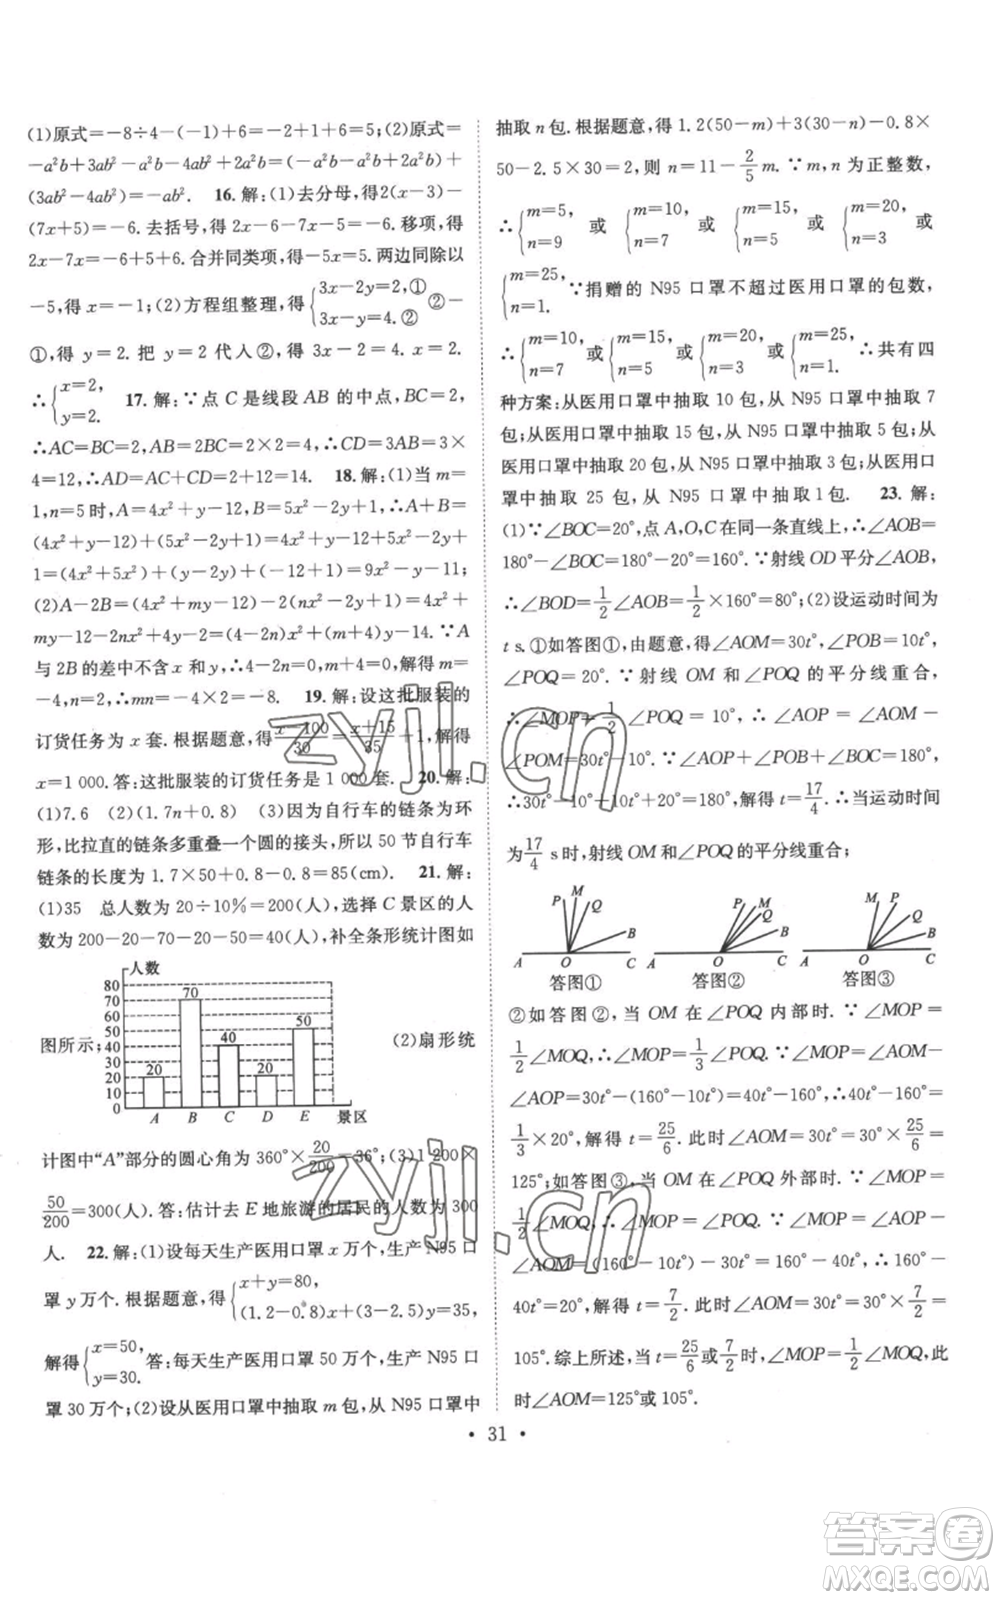 (1)原式=-8÷4-(-1)+6=-2+1+6=5;(2)原式=
-a²b+3ab²-a²b-4ab²+2a²b=(-a²b-a²b+2a²b)+
(3ab²-4ab²)=-ab². 16.解:(1)去分母,得2(x-3)-
(7x+5)=-6.去括号,得2x-6-7x-5=-6.移项,得
2x-7x=-6+5+6.合并同类项,得-5x=5.两边同除以
-5,得x=-1;(2)方程组整理,得{3x-2y=2,① 3x-y=4.② ②-
①,得 y=2. 把 y=2 代入②,得 3x-2=4. x=2.
∴{x=2, y=2. 17.解:∵点C是线段AB的中点,BC=2,
∴AC=BC=2,AB=2BC=2×2=4,∴CD=3AB=3×
4=12,∴AD=AC+CD=2+12=14. 18.解:(1)当m=
1,n=5时,A=4x²+y-12,B=5x²-2y+1,∴A+B=
(4x²+y-12)+(5x²-2y+1)=4x²+y-12+5x²-2y+
1=(4x²+5x²)+(y-2y)+(-12+1)=9x²-y-11;
(2)A-2B=(4x²+my-12)-2(nx²-2y+1)=4x²+
my-12-2nx²+4y-2=(4-2n)x²+(m+4)y-14.∵A
与2B的差中不含x和y,∴4-2n=0,m+4=0,解得m=
-4,n=2,∴mn=-4×2=-8. 19.解:设这批服装的
订货任务为x套.根据题意,得(x-100)/30=(x+15)/35+1,解得
x=1 000.答:这批服装的订货任务是1 000套. 20.解:
(1)7.6 (2)(1.7n+0.8) (3)因为自行车的链条为环
形,比拉直的链条多重叠一个圆的接头,所以50节自行车
链条的长度为1.7×50+0.8-0.8=85(cm). 21.解:
(1)35 总人数为20÷10%=200(人),选择C景区的人
数为200-20-70-20-50=40(人),补全条形统计图如
图所示;
人数
80
70
60
50
40
30
20
10
0
20
70
40
20
50
A B C D E 景区
(2)扇形统
计图中“A”部分的圆心角为360°×20/200=36°;(3)1 200×
50/200=300(人).答:估计去E地旅游的居民的人数为300
人. 22.解:(1)设每天生产医用口罩x万个,生产N95口
罩y万个.根据题意,得{x+y=80, (1.2-0.8)x+(3-2.5)y=35,
解得{x=50, y=30. 答:每天生产医用口罩50万个,生产N95口
罩30万个;(2)设从医用口罩中抽取m包,从N95口罩中
抽取n包.根据题意,得1.2(50-m)+3(30-n)-0.8×
50-2.5×30=21,则n=11-2/5m.∵m,n为正整数,
∴{m=5, n=9 或 {m=10, n=7 或 {m=15, n=5 或 {m=20, n=3 或
{m=25, n=1. ∵捐赠的N95口罩不超过医用口罩的包数,
∴{m=10, n=7 或{m=15, n=5 或{m=20, n=3 或{m=25, n=1. ∴共有四
种方案:从医用口罩中抽取10包,从N95口罩中抽取7
包;从医用口罩中抽取15包,从N95口罩中抽取5包;从
医用口罩中抽取20包,从N95口罩中抽取3包;从医用口
罩中抽取25包,从N95口罩中抽取1包. 23.解:
(1)∵∠BOC=20°,点A,O,C在同一条直线上,∴∠AOB=
180°-∠BOC=180°-20°=160°.∵射线OD平分∠AOB,
∴∠BOD=1/2∠AOB=1/2×160°=80°;(2)设运动时间为
t s.①如答图①,由题意,得∠AOM=30t°,∠POB=10t°,
∠POQ=20°.∵射线OM和∠POQ的平分线重合,
∴∠MOP=1/2∠POQ=10°,∴∠AOP=∠AOM-
∠POM=30t°-10°.∵∠AOP+∠POB+∠BOC=180°,
∴30t°-10°+10t°+20°=180°,解得t=17/4.∴当运动时间
为17/4 s时,射线OM和∠POQ的平分线重合;
P M Q B A O C
答图①
M P Q B A O C
答图②
M P Q B A O C
答图③
②如答图②,当OM在∠POQ内部时.∵∠MOP=
1/2∠MOQ,∴∠MOP=1/3∠POQ.∵∠MOP=∠AOM-
∠AOP=30t°-(160°-10t°)=40t°-160°,∴40t°-160°=
1/3×20°,解得t=25/6.此时∠AOM=30t°=30°×25/6=
125°;如答图③,当OM在∠POQ外部时.∵∠MOP=
1/2∠MOQ,∴∠MOP=∠POQ=20°.∵∠MOP=∠AOP-
∠AOM=(160°-10t°)-30t°=160°-40t°,∴160°-
40t°=20°,解得t=7/2.此时∠AOM=30t°=30°×7/2=
105°.综上所述,当t=25/6或7/2时,∠MOP=1/2∠MOQ,此
时∠AOM=125°或105°.
• 31 •
zyjl.cn
zyjl.cn
答案圈
MXQE.COM